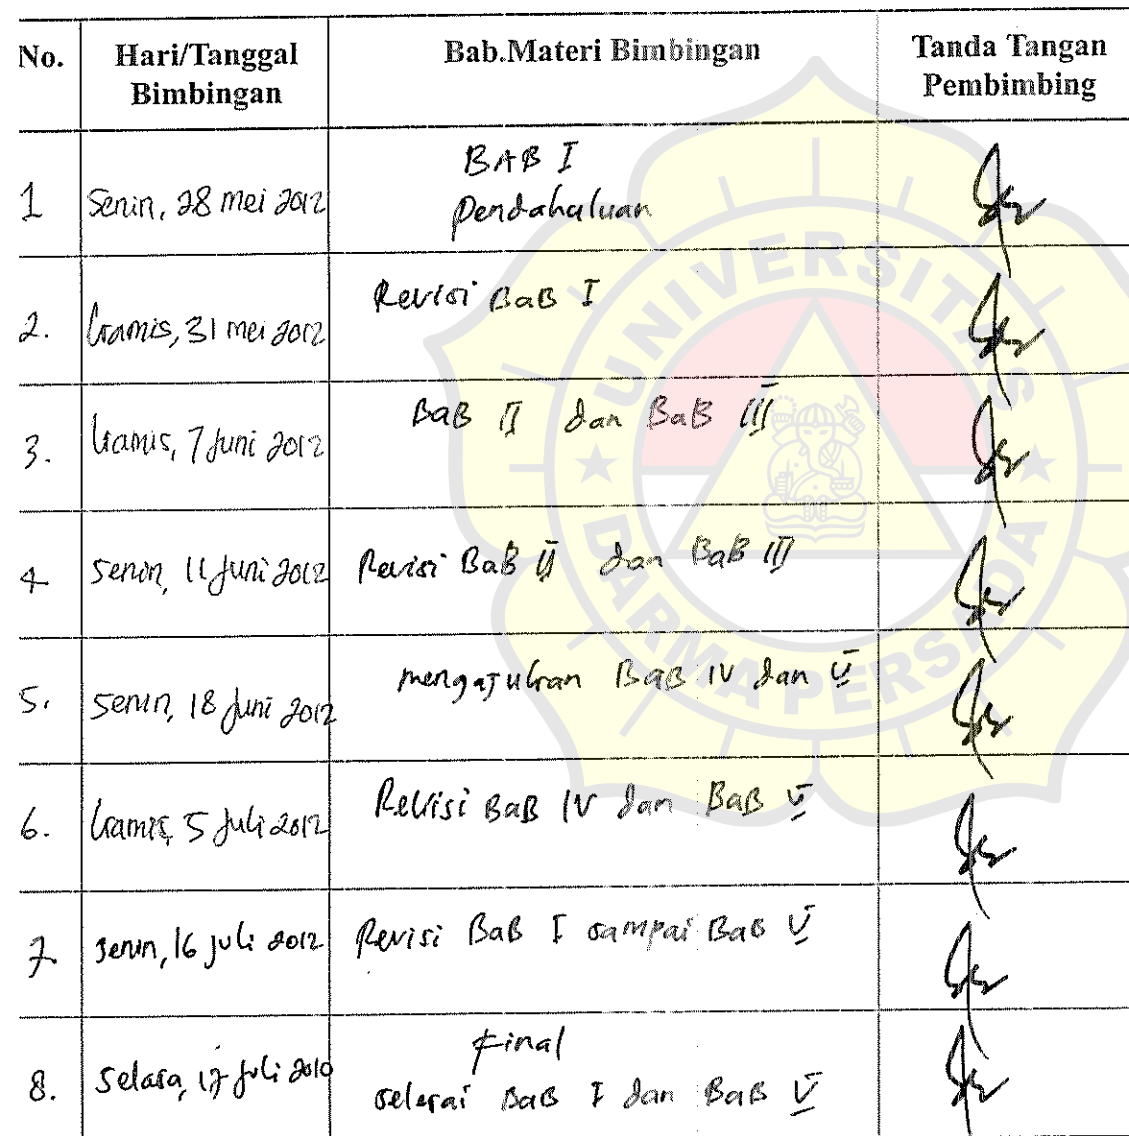 No. Hari/Tanggal Bimbingan Bab.Materi Bimbingan Tanda Tangan Pembimbing
1 Senin, 28 mei 2012 BAB I
Pendahaluan
2. kamis, 31 mei 2012 Revisi BaB I
3. kamis, 7 Juni 2012 BaB II dan BaB III
4 Senin, 11 Juni 2012 Revisi BaB II dan BaB III
5. Senin, 18 Juni 2012 mengajukan BaB IV dan V
6. kamis, 5 Juli 2012 Revisi BaB IV dan BaB V
7. Senin, 16 juli 2012 Revisi BaB I sampai BaB V
8. Selasa, 17 juli 2010 Final
selesai BaB I dan BaB V
UNIVERSITAS
DARMA PERSADA